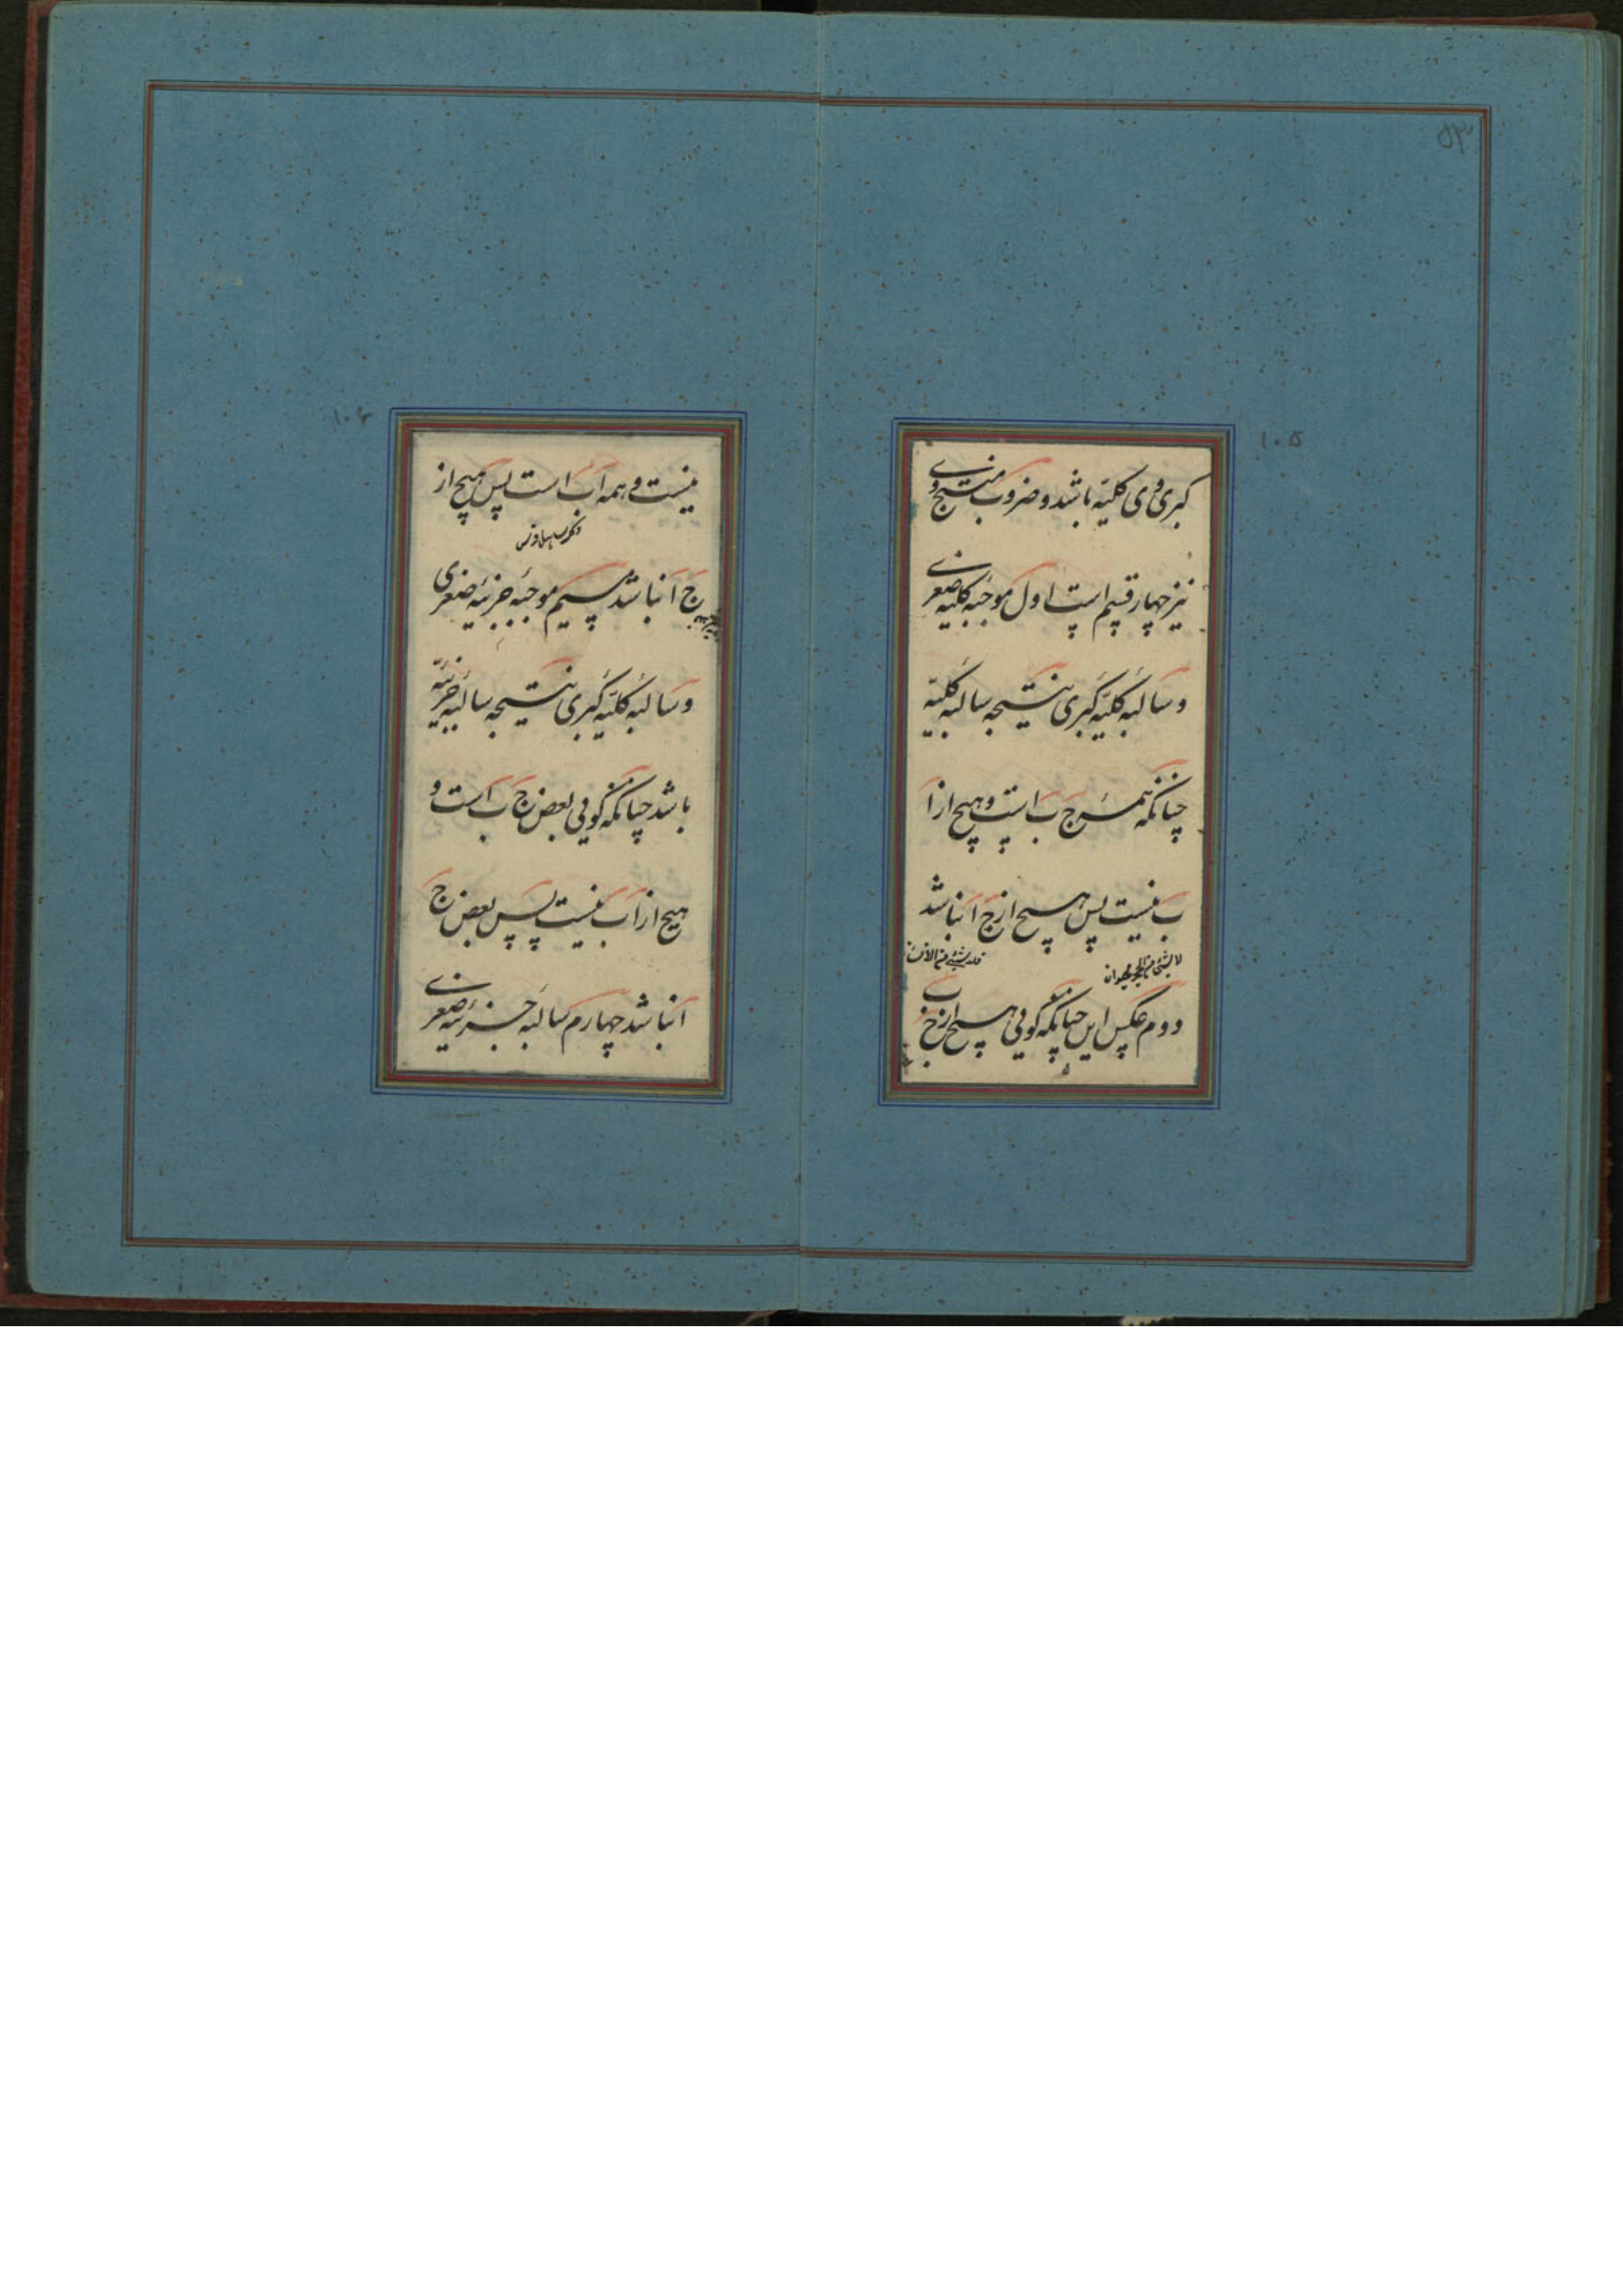 ۵۳
۱۰۵
کبری وی کلیه باشد و ضروب منتج وی
نیز چهار قسم است اول موجبه کلیه صغری
و سالبه کلیه کبری نتیجه سالبه کلیه
چنانکه همه ج ب است و هیچ از ا
ب نیست پس هیچ از ج ا نباشد
لا شئ من الحجر بحیوان
دوم عکس این چنانکه گویی هیچ از ج ب
۱۰۶
نیست و همه ا ب است پس هیچ از
ج ا نباشد سیم موجبه جزئیه صغری
و سالبه کلیه کبری نتیجه سالبه جزئیه
باشد چنانکه گویی بعض ج ب است و
هیچ از ا ب نیست پس بعض ج
ا نباشد چهارم سالبه جزئیه صغری